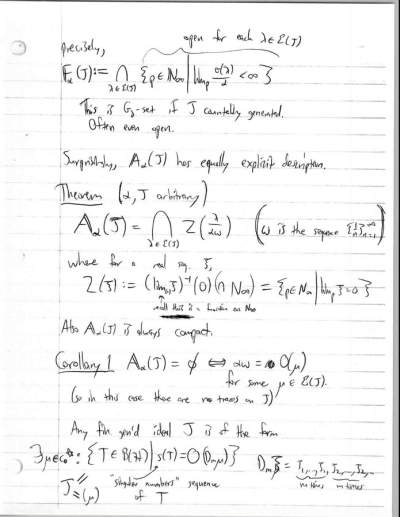 open for each λ∈Σ(J)
Precisely,
F_α(J) := ∩_{λ∈Σ(J)} {p∈ℕ∞ | lim_p σ(λ)/α < ∞}
This is G_δ-set if J countably generated.
Often even open.
Surprisingly, A_α(J) has equally explicit description.
Theorem (α, J arbitrary)
A_α(J) = ∩_{λ∈Σ(J)} Z(λ/αω) (ω is the sequence {1/n}_{n=1}^∞)
where for a real seq. ξ,
Z(ξ) := (lim ξ)^{-1}(0) (∩ ℕ∞) = {p∈ℕ∞ | lim_p ξ = 0}
recall this is a function on ℕ∞
Also A_α(J) is always compact.
Corollary 1 A_α(J) = ∅ ⇔ αω = O(μ)
for some μ∈Σ(J).
(so in this case there are no traces on J)
Any fin. gen'd ideal J is of the form
∃μ∈c₀*: {T∈B(H) | s(T) = O(D_mμ)} D_mξ = ξ₁,...,ξ₁, ξ₂,...,ξ₂,...
J = (μ) "singular numbers" sequence m times m times
of T